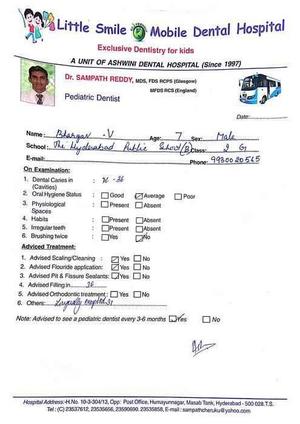 Little Smile Mobile Dental Hospital
Exclusive Dentistry for kids
A UNIT OF ASHWINI DENTAL HOSPITAL (Since 1997)
Dr. SAMPATH REDDY, MDS, FDS RCPS (Glasgow)
MFDS RCS (England)
Pediatric Dentist
Date:
Name: Bhargav .V Age: 7 Sex: Male
School: The Hyderabad Public School (B) Class: 2 G
E-mail: Phone: 9980020565
On Examination:
1. Dental Caries in (Cavities) : 36
2. Oral Hygiene Status : Good Average Poor
3. Physiological Spaces : Present Absent
4. Habits : Present Absent
5. Irregular teeth : Present Absent
6. Brushing twice : Yes No
Adviced Treatment:
1. Advised Scaling/Cleaning : Yes No
2. Advised Flouride application: Yes No
3. Advised Pit & Fissure Sealants: Yes No
4. Advised Filling in 36
5. Advised Orthodontic treatment: Yes No
6. Others:
Note: Advised to see a pediatric dentist every 3-6 months Yes No
Hospital Address:-H.No. 10-3-304/13, Opp: Post Office, Humayunnagar, Masab Tank, Hyderabad - 500 028.T.S.
Tel : (C) 23537612, 23535656, 23590690, 23535858, E-mail : sampathcheruku@yahoo.com